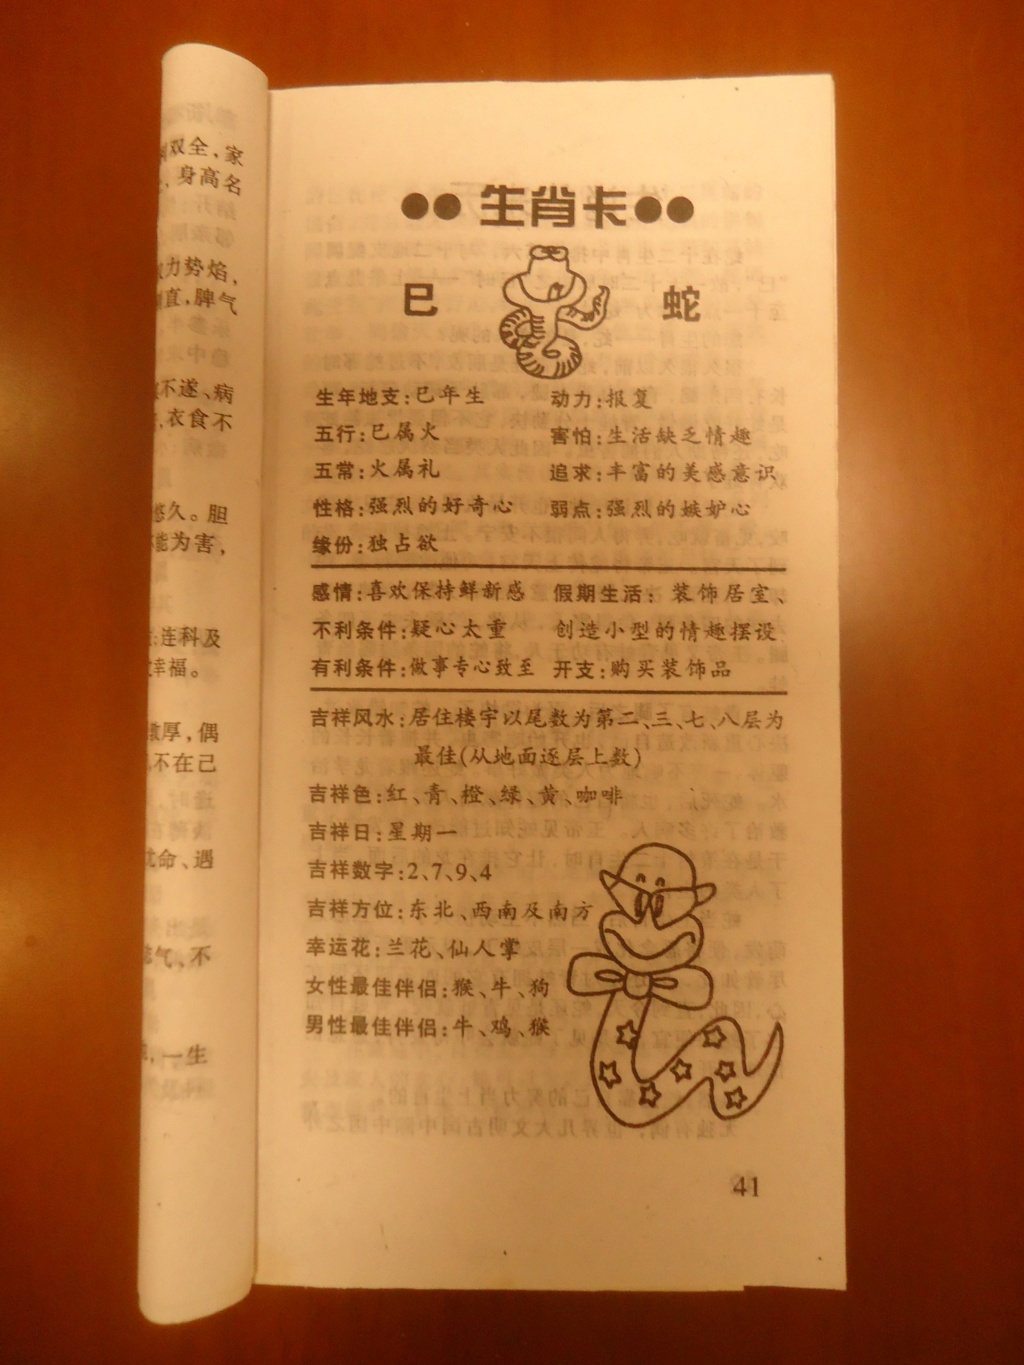 双全，家
身高名
力势焰，
直，脾气
不遂、病
，衣食不
悠久。胆
能为害，
连科及
幸福。
敦厚，偶
不在己
亢命、遇
气、不
，一生
●●生肖卡●●
巳 蛇
生年地支：巳年生 动力：报复
五行：巳属火 害怕：生活缺乏情趣
五常：火属礼 追求：丰富的美感意识
性格：强烈的好奇心 弱点：强烈的嫉妒心
缘份：独占欲
感情：喜欢保持鲜新感 假期生活：装饰居室、
不利条件：疑心太重 创造小型的情趣摆设
有利条件：做事专心致至 开支：购买装饰品
吉祥风水：居住楼宇以尾数为第二、三、七、八层为
最佳(从地面逐层上数)
吉祥色：红、青、橙、绿、黄、咖啡
吉祥日：星期一
吉祥数字：2、7、9、4
吉祥方位：东北、西南及南方
幸运花：兰花、仙人掌
女性最佳伴侣：猴、牛、狗
男性最佳伴侣：牛、鸡、猴
41